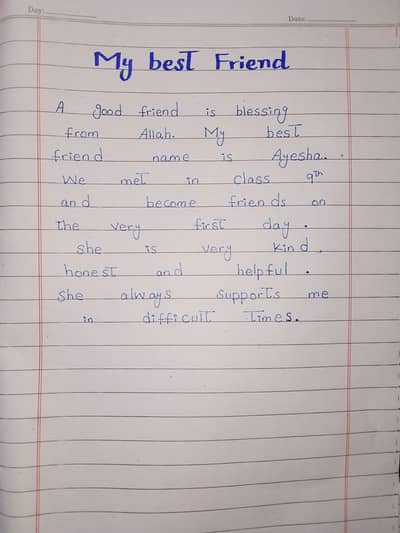 Day:
Date:
My best Friend
A good friend is blessing
from Allah. My best
friend name is Ayesha..
We met in class 9th
and become friends on
the very first day.
she is very kind,
honest and helpful.
She always supports me
in difficult Times.